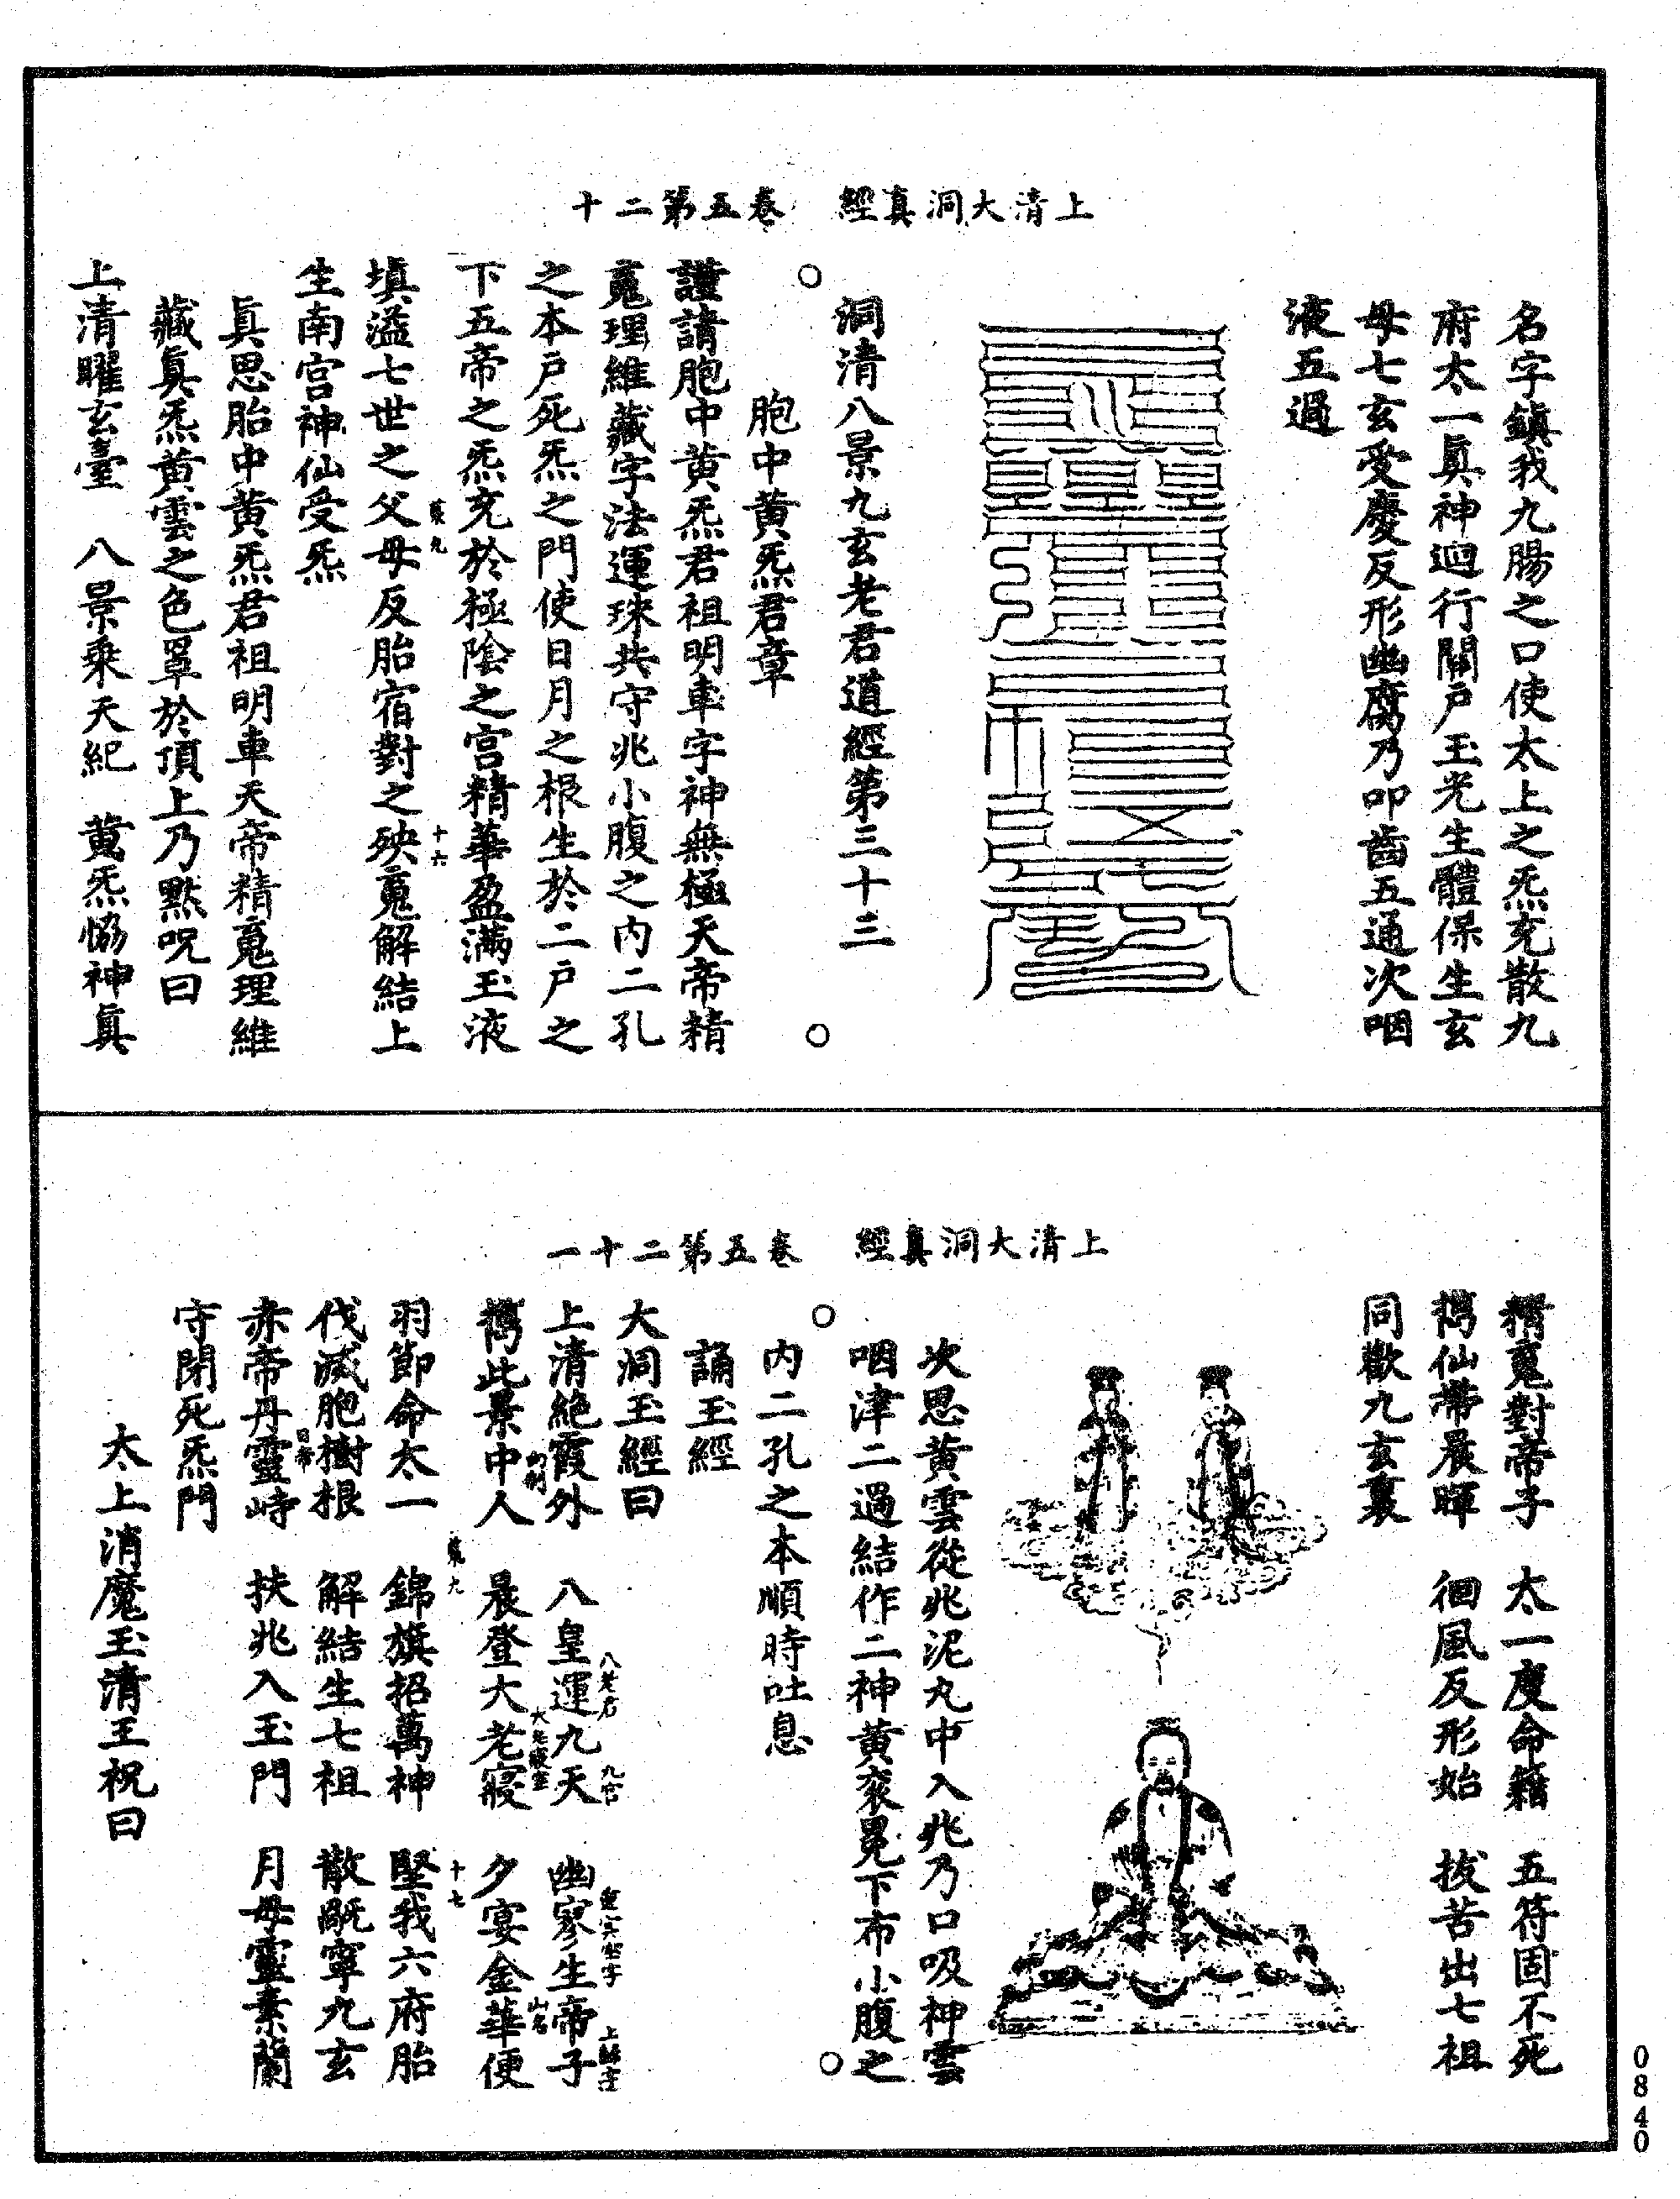 上清大洞真經　卷五第二十
名字鎮我九腸之口使太上之炁充散九
府太一真神迴行關戶玉光生體保生玄
母七玄受慶反形幽腐乃叩齒五通次咽
液五過
洞清八景九玄老君道經第三十三
胞中黃炁君章
謹請胞中黃炁君祖明車字神無極天帝精
魂理維藏字法運珠共守兆小腹之內二孔
之本戶死炁之門使日月之根生於二戶之
下五帝之炁充於極陰之宮精華盈滿玉液
填溢七世之父母反胎宿對之殃魂解結上
生南宮神仙受炁
真思胎中黃炁君祖明車天帝精魂理維
藏真炁黃雲之色罩於頂上乃默呪曰
上清曜玄臺　八景乘天紀　黃炁恊神真
上清大洞真經　卷五第二十一
精魂對帝子　太一度命籍　五符固不死
攜仙帶晨暉　徊風反形始　拔苦出七祖
同歡九玄裏
次思黃雲從兆泥丸中入兆乃口吸神雲
咽津二過結作二神黃衮冕下布小腹之
內二孔之本順時吐息
誦玉經
大洞玉經曰
上清絕霞外　八皇運九天　幽寥生帝子
八老君　九宮
攜此景中人　晨登大老寢　夕宴金華便
大老寢室　山名
羽節命太一　錦旗招萬神　堅我六府胎
伐滅胞樹根　解結生七祖　散翫寧九玄
赤帝丹靈峙　扶兆入玉門　月母靈素蘭
日帝
守閉死炁門
太上消魔玉清王祝曰
十六
十七
0840